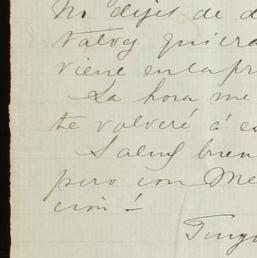 No dejes de d
Valoy quiera
viene en la pr
La hora me
te volveré á es
Salud buen
pero con Me
ción!
Tuyo